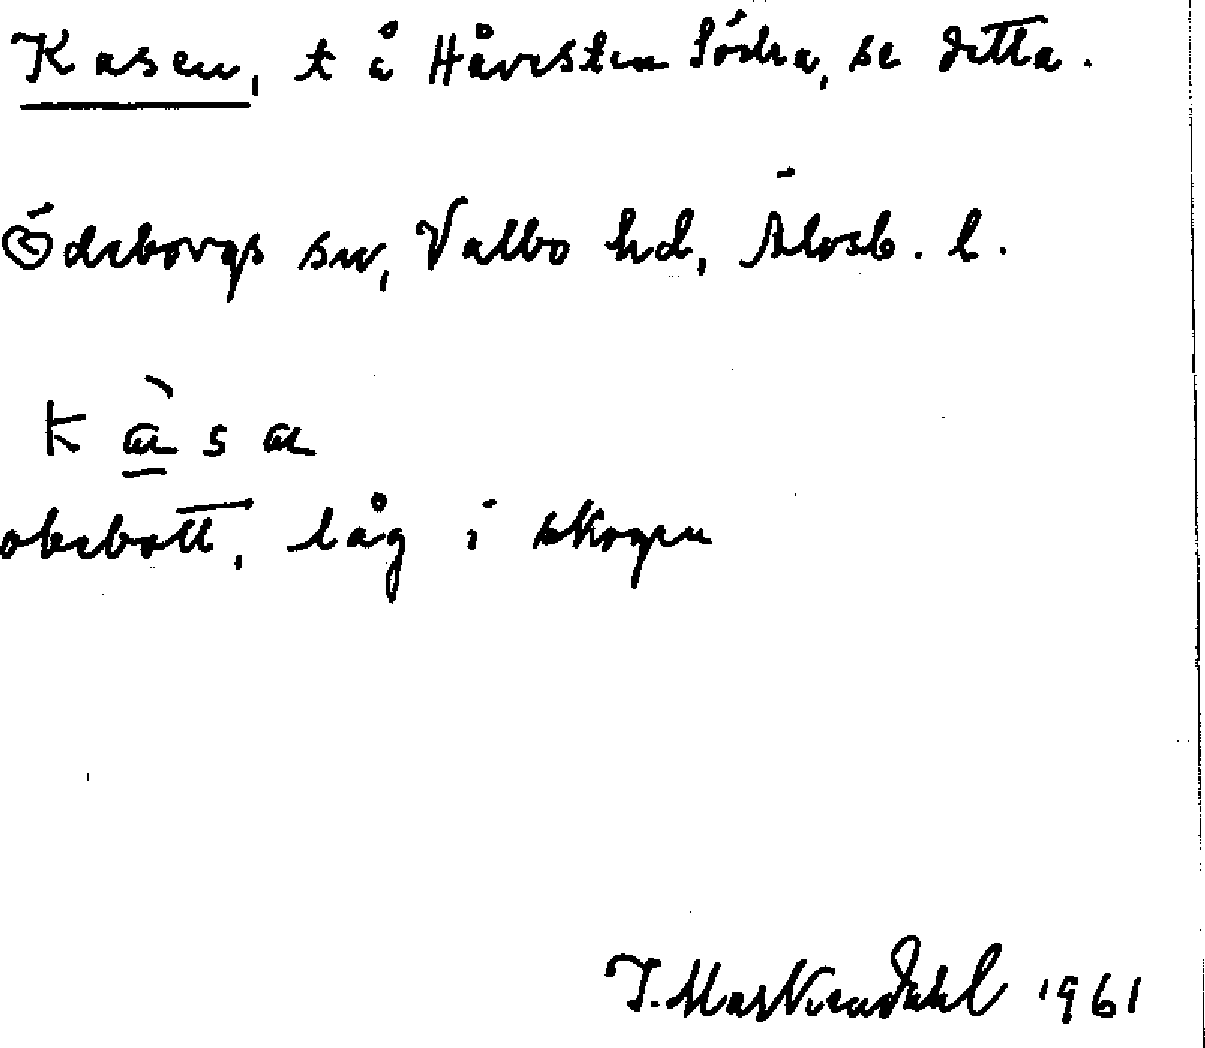 Kasen, t å Håvesten Södra, se detta.
Ödeborgs sn, Valbo hd, Älvsb. l.
k à̲ s a
obebott, låg i skogen
1961